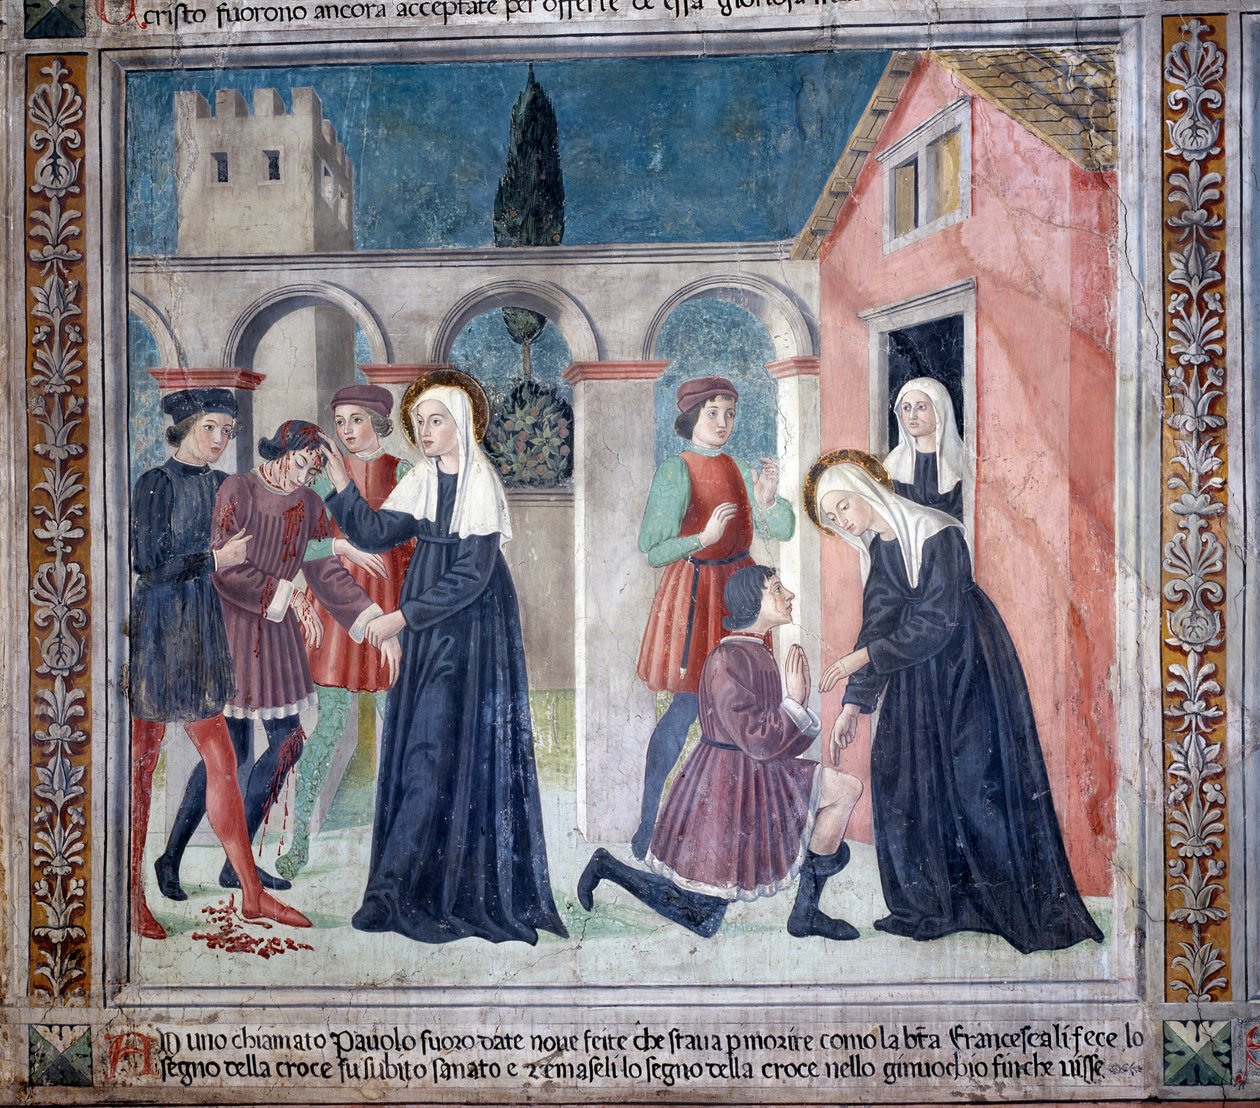 cristo fuorono ancora acceptate per offerte de essa gloriosa
AD uno chiamato Pavolo fuoro date nove feite che stava p morire como la bt̃a Francesca li fece lo
segno della croce fu subito sanato e remaseli lo segno della croce nello ginuochio finche visse